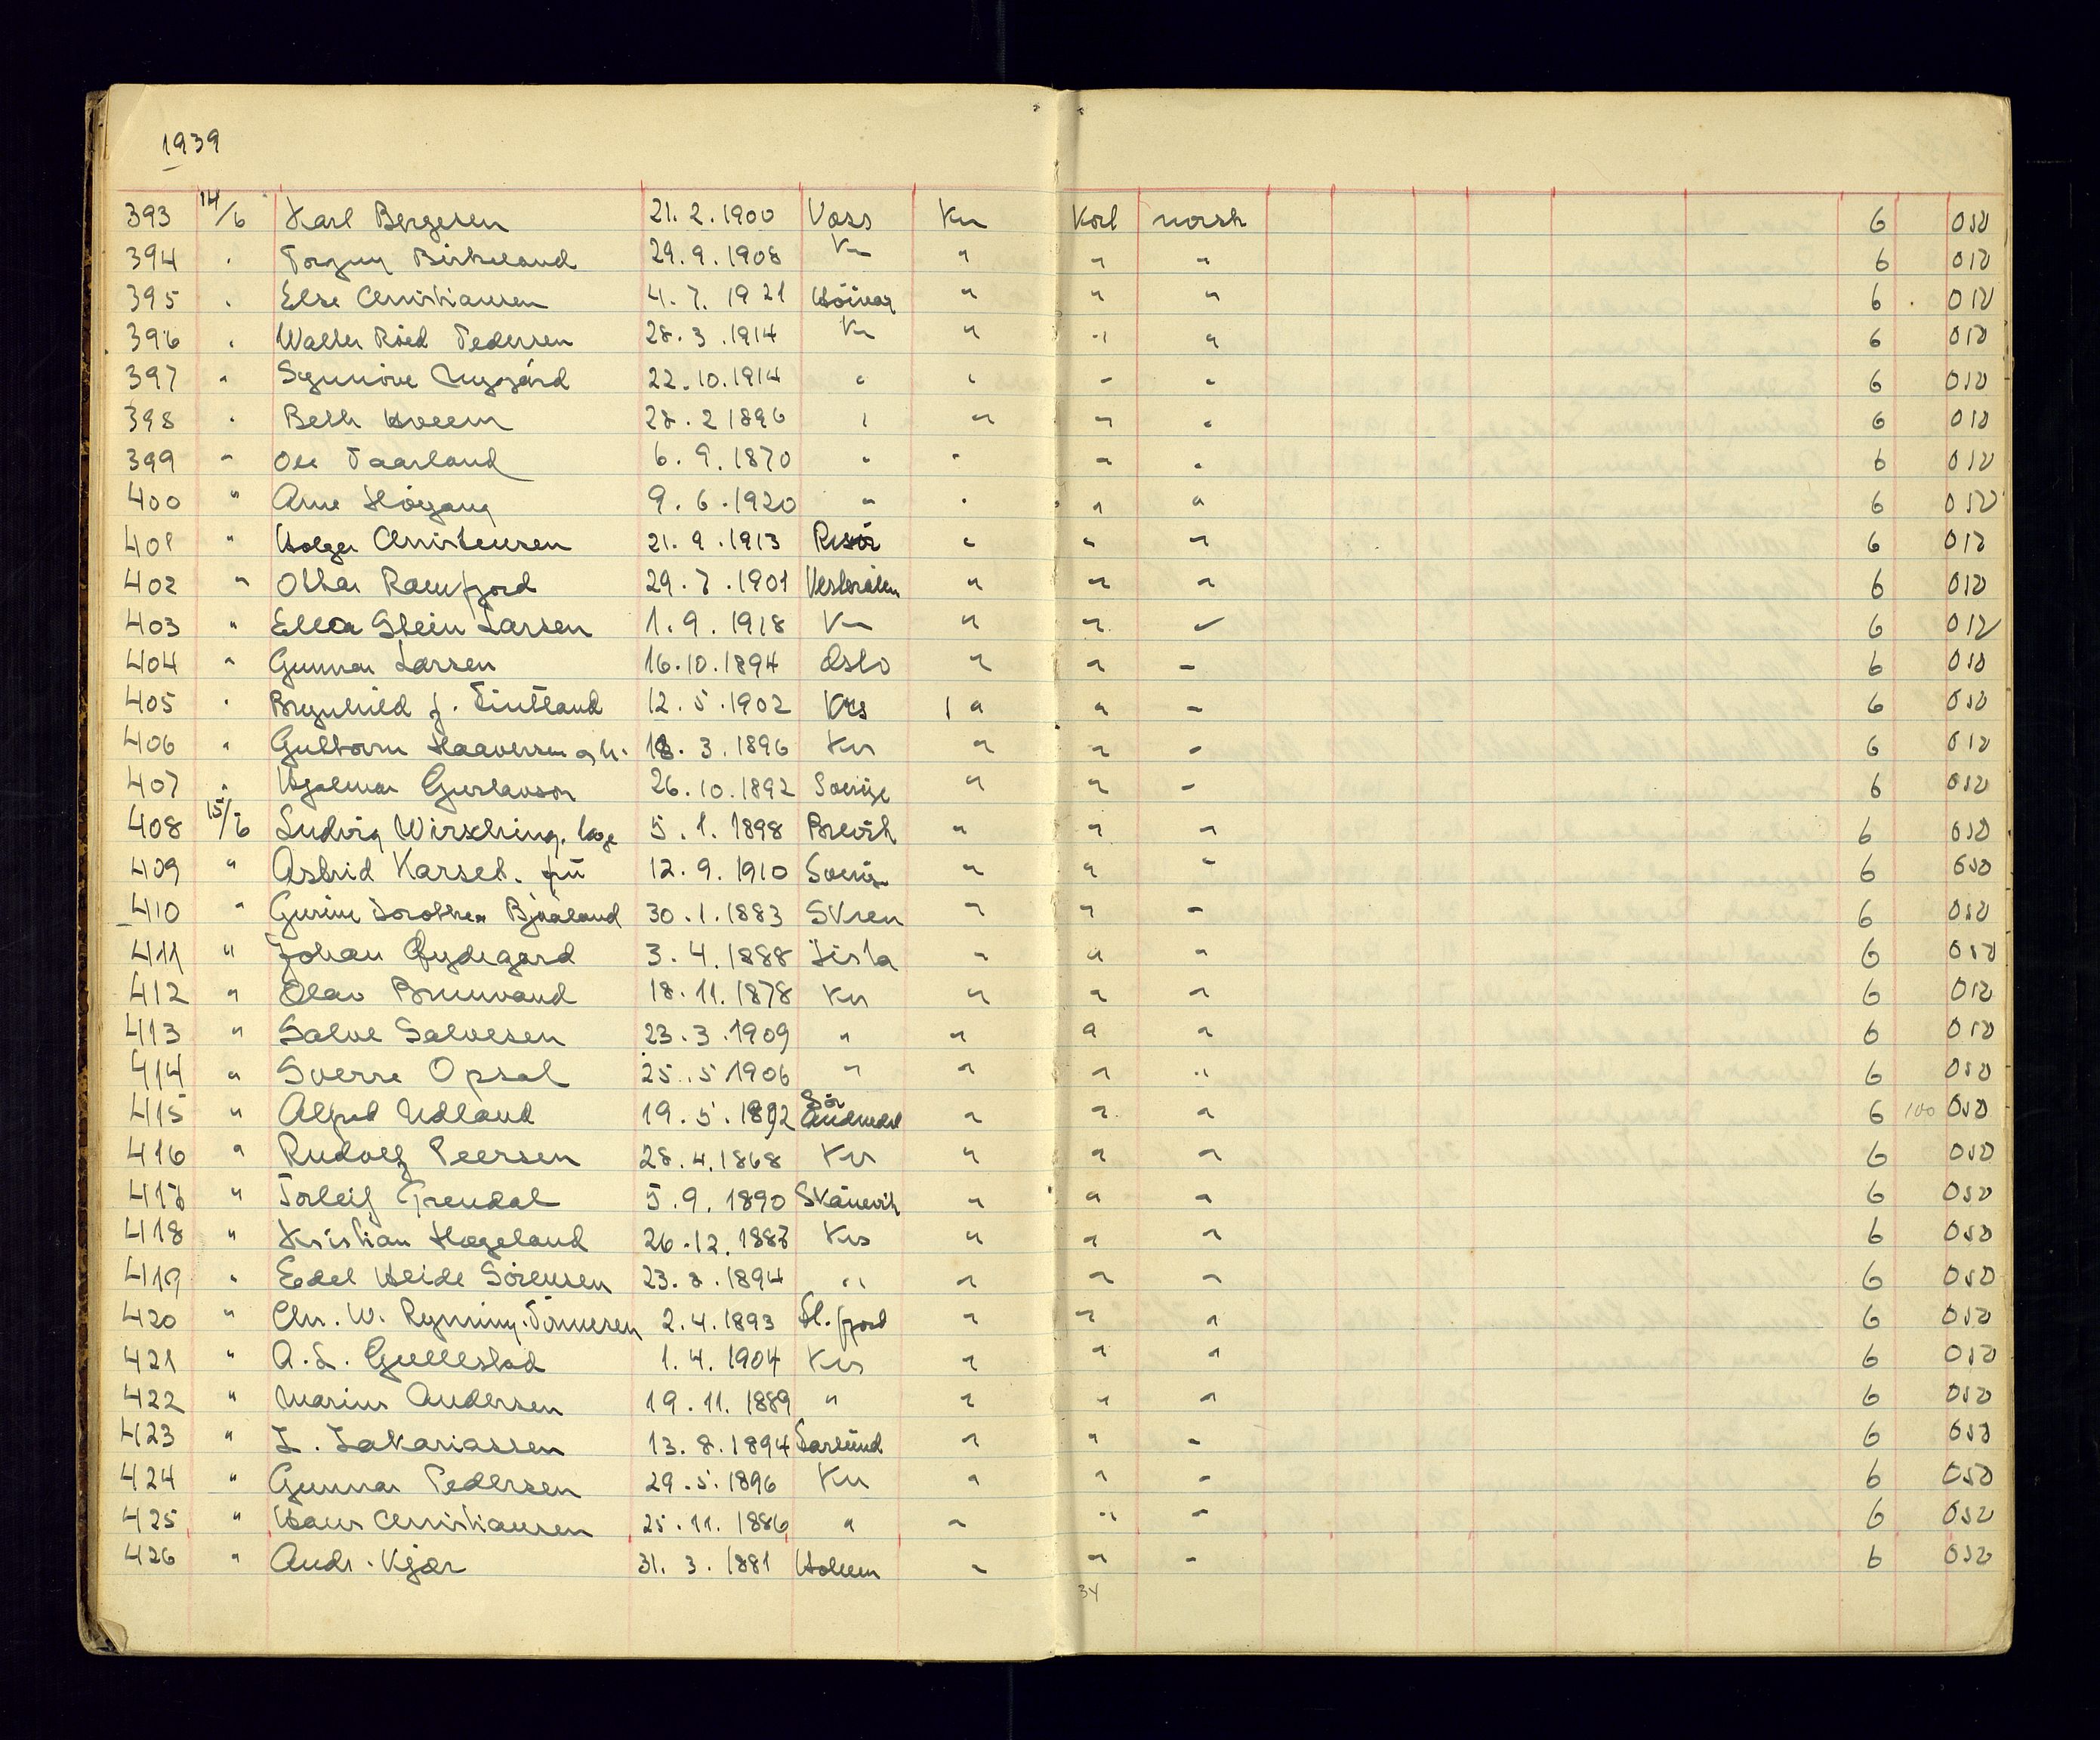 1939
393 14/6 Karl Bergesen 21. 2. 1900 Voss Krs Korl norsk 6 050
394 . Torguy Birkeland 29. 9. 1908 Krs " " " 6 010
395 . Else Christiansen 4. 7. 1921 " " " 6 010
396 . Walter Pedersen 28. 3. 1914 Krs " " " 6 010
397 " Synnöve Nygård 22. 10. 1914 " " " " 6 010
398 . Beth Hveem 28. 2 1896 " " " " 6 010
399 " Ole Taarland 6. 9. 1870 " " " " 6 010
400 " Arne 9. 6. 1920 " " " " 6 010
401 " Holger Christensen 21. 9. 1913 Risör " " " 6 010
402 " Ottar Ramfjord 29. 7. 1901 Vesterålen " " " 6 010
403 " Ella Stein Larsen 1. 9. 1918 Krs " " " 6 010
404 " Gunnar Larsen 16. 10. 1894 Oslo " " " 6 010
405 . Brynhild J. Tintland 12. 5. 1902 Krs 1 " " " 6 050
406 " Haaversen 18. 3. 1896 Krs " " " 6 010
407 . Hjalmar Gustavson 26. 10. 1892 Sverige " " " 6 050
408 15/6 Ludvig Wirsching. 5. 1. 1898 Brevik " " " 6 050
409 " Astrid Karset. 12. 9. 1910 Sverige " " " 6 050
410 " Gurine Dorothea Bjåland 30. 1. 1883 Skien " " " 6 050
411 " Johan Qydegard 3. 4. 1888 Lista " " " 6 050
412 " Olav Brunvand 18. 11. 1878 Krs " " " 6 010
413 " Salve Salvesen 23. 3. 1909 " " " " 6 010
414 " Sverre Opsal 25. 5 1906 " " " " 6 050
415 " Alfred Udland 19. 5. 1892 Sör Audnedal " " " 6 100 050
416 " Rudolf Peersen 28. 4. 1868 Krs " " " 6 050
417 " Torleif Grendal 5. 9. 1890 Skånevik " " " 6 050
418 " Kristian Hægeland 26. 12. 1887 Krs " " " 6 050
419 " Edel Heide Sörensen 23. 8. 1894 " " " " 6 050
420 " Chr. W. Ryning-Tönnesen 2. 4. 1893 Fl. fjord " " " 6 050
421 " A. L. Gullestad 1. 4. 1904 Krs " " " 6 050
422 " Marius Andersen 19. 11. 1889 " " " " 6 050
423 " Z. Zakariassen 13. 8. 1894 Farsund " " " 6 050
424 " Gunnar Pedersen 29. 5. 1896 Krs " " " 6 050
425 " Hans Christiansen 25. 11. 1886 " " " " 6 050
426 " Andr. Kjær 31. 3. 1881 Holum " " " 6 050
34